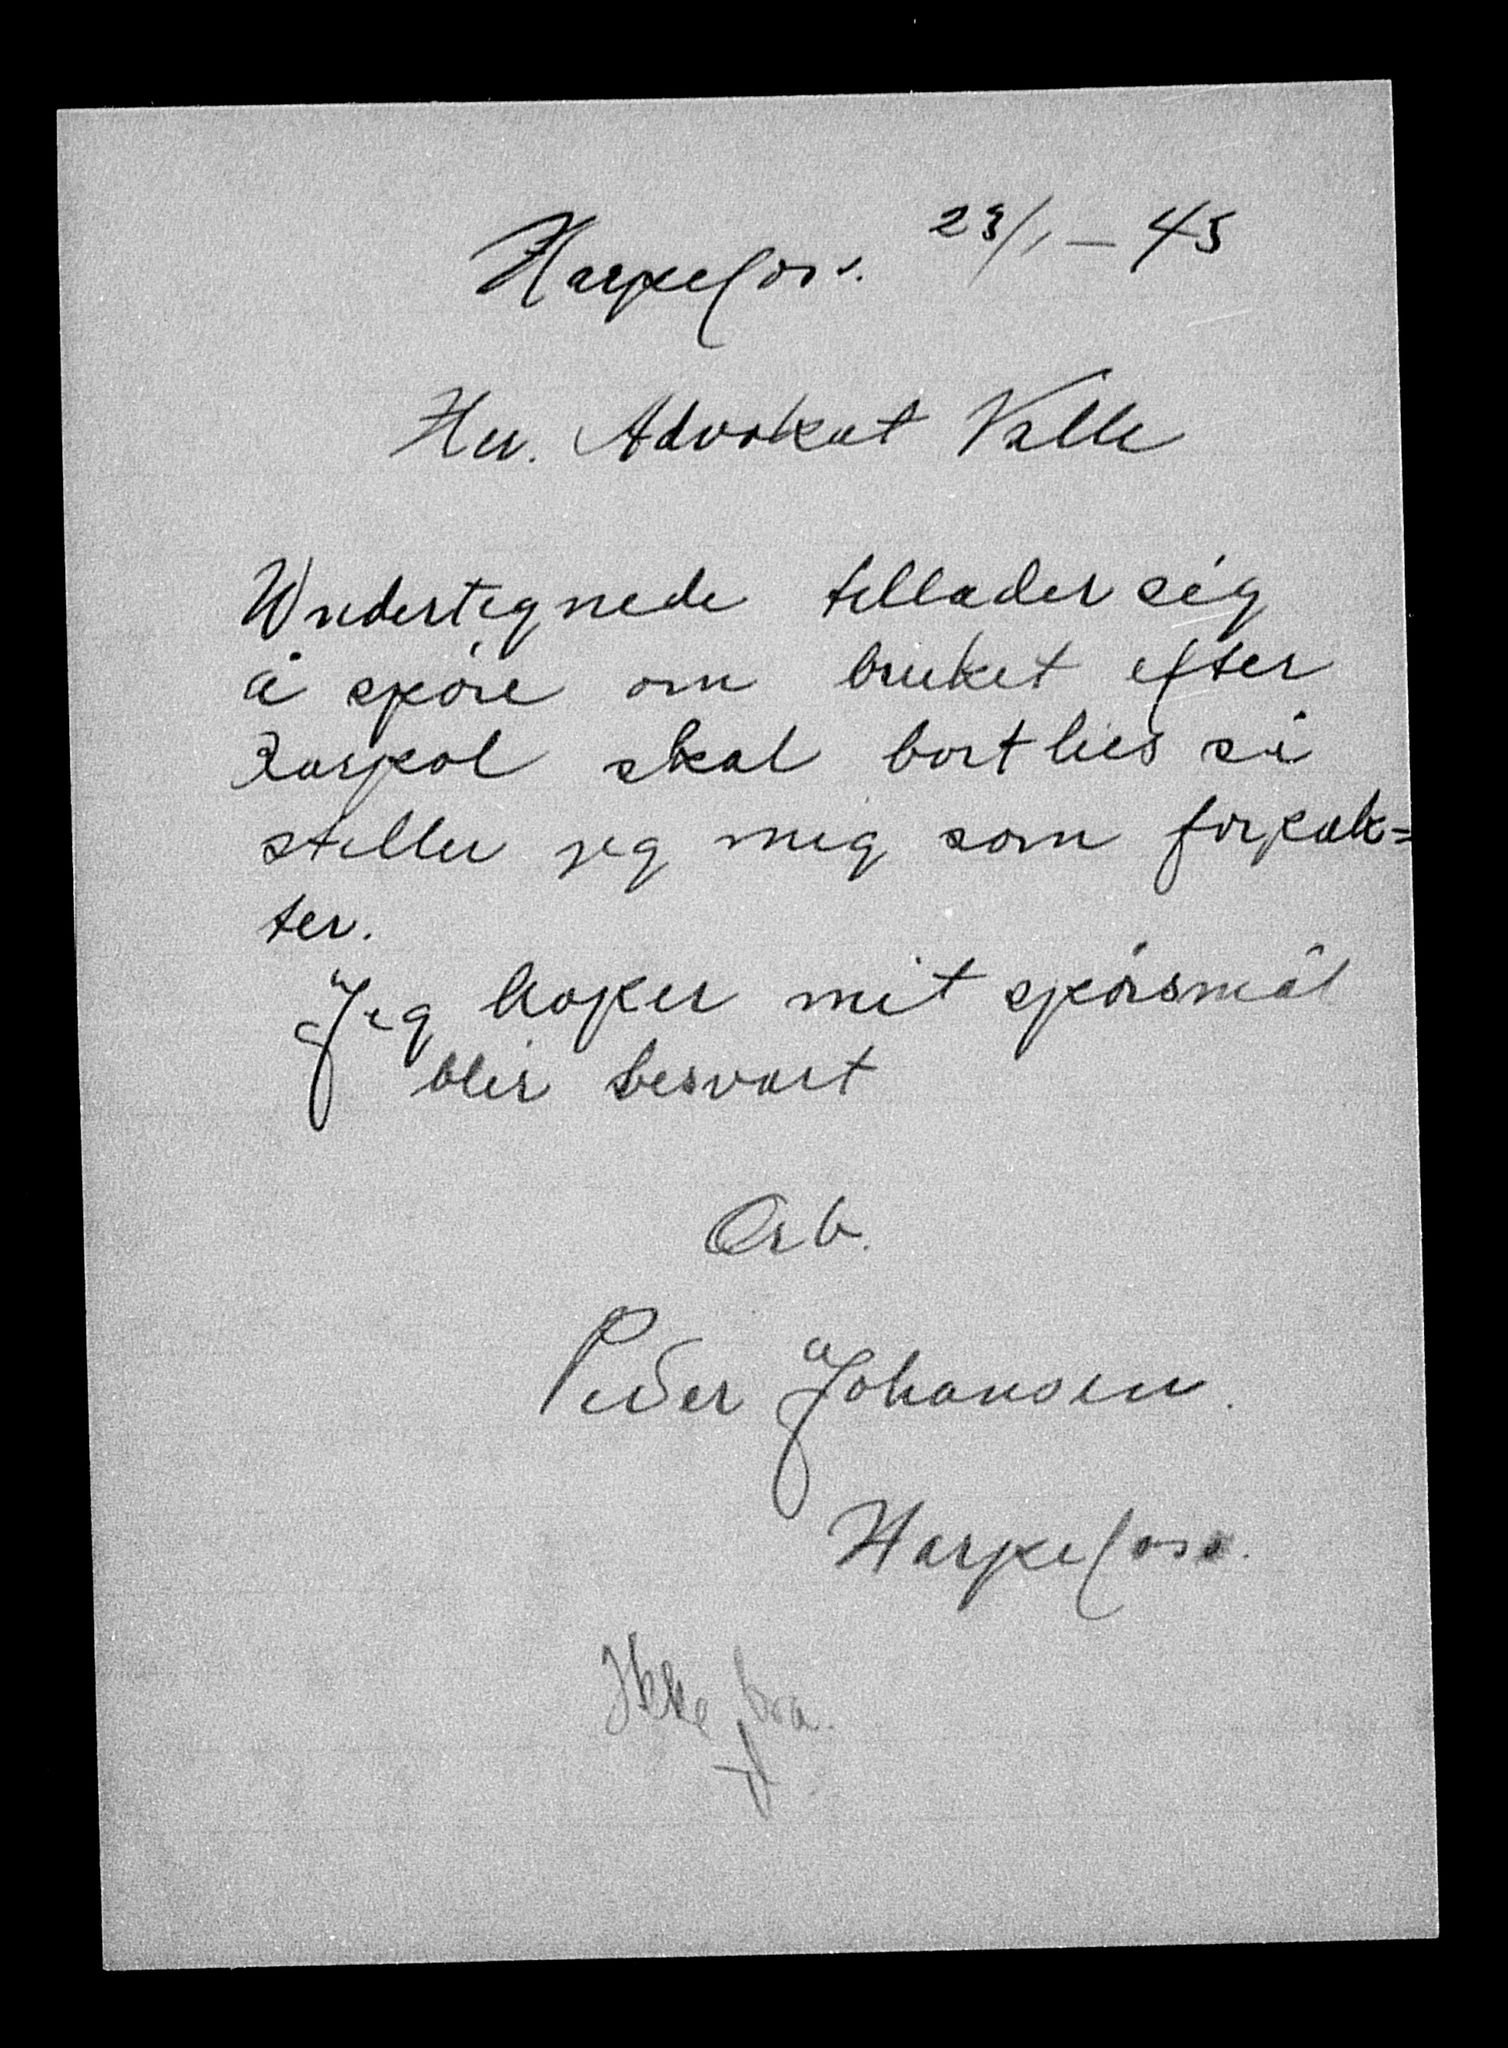 Harpefoss. 23/1 – 45
Her. Advokat Valle
Undertegnede tellader sig
å spøre om bruket efter
Raskol skal bortlies så
stiller jeg mig som forpak=
ter.
Jeg hoper mit spørsmål
blir besvart
Erb.
Peder Johansen.
Harpefoss.
Ikke bra.